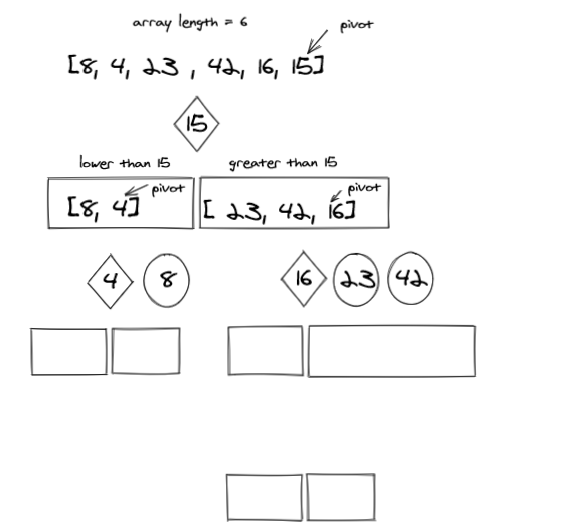 array length = 6
pivot
[8, 4, 23, 42, 16, 15]
15
lower than 15
greater than 15
pivot
pivot
[8, 4]
[23, 42, 16]
4
8
16
23
42